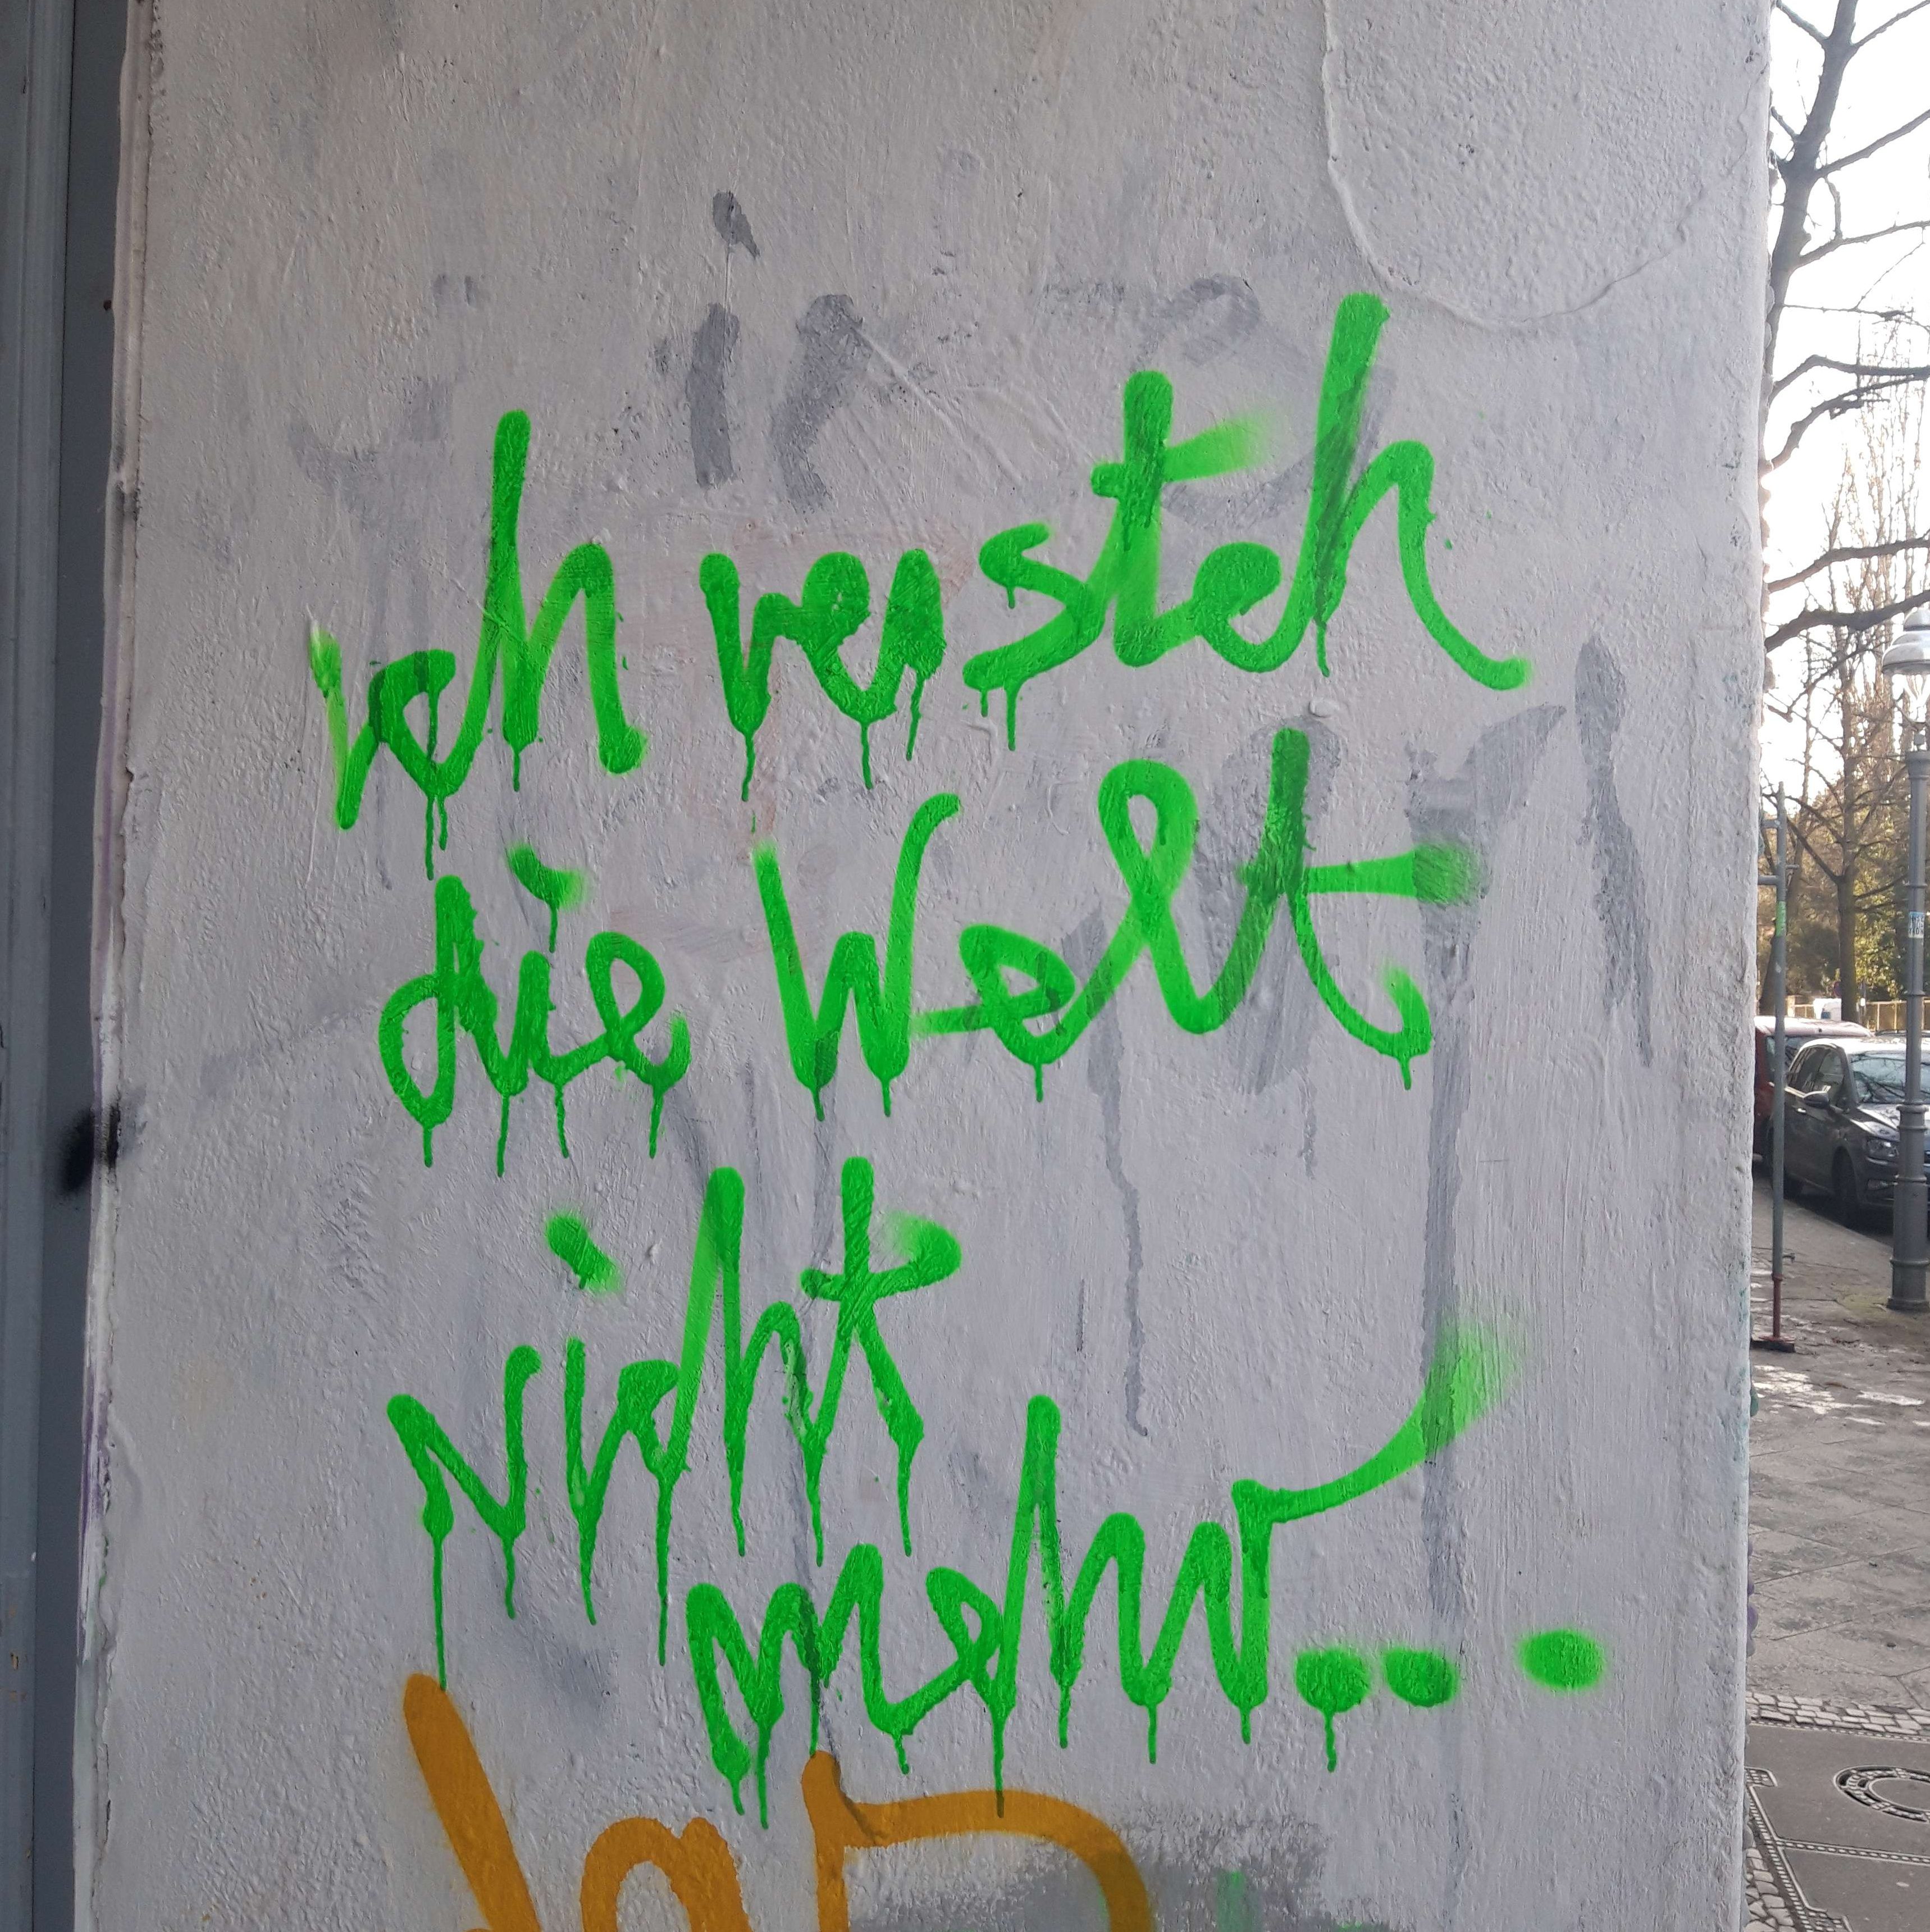 ich versteh
die Welt
nicht
mehr...